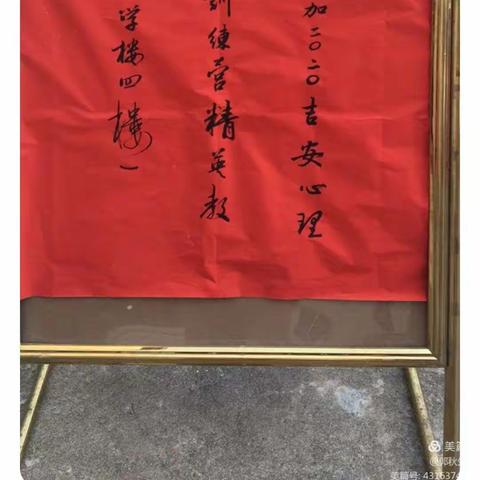 加二〇二〇吉安心理
训练营精英教
学楼四楼）
美篇
@邓秋
美篇号: 4315374